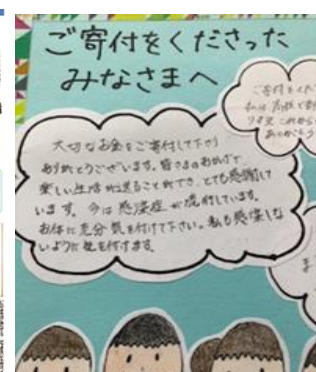 ご寄付をくださった
みなさまへ
大切なお金をご寄付して下さり
ありがとうございます。皆さまのおかげで、
楽しい生活が送ることができ、とても感謝して
います。今は感染症が流行しています。
お体に充分気を付けて下さい。私も感染しな
いように気を付けます。
ご寄付をくだ
ありがとう